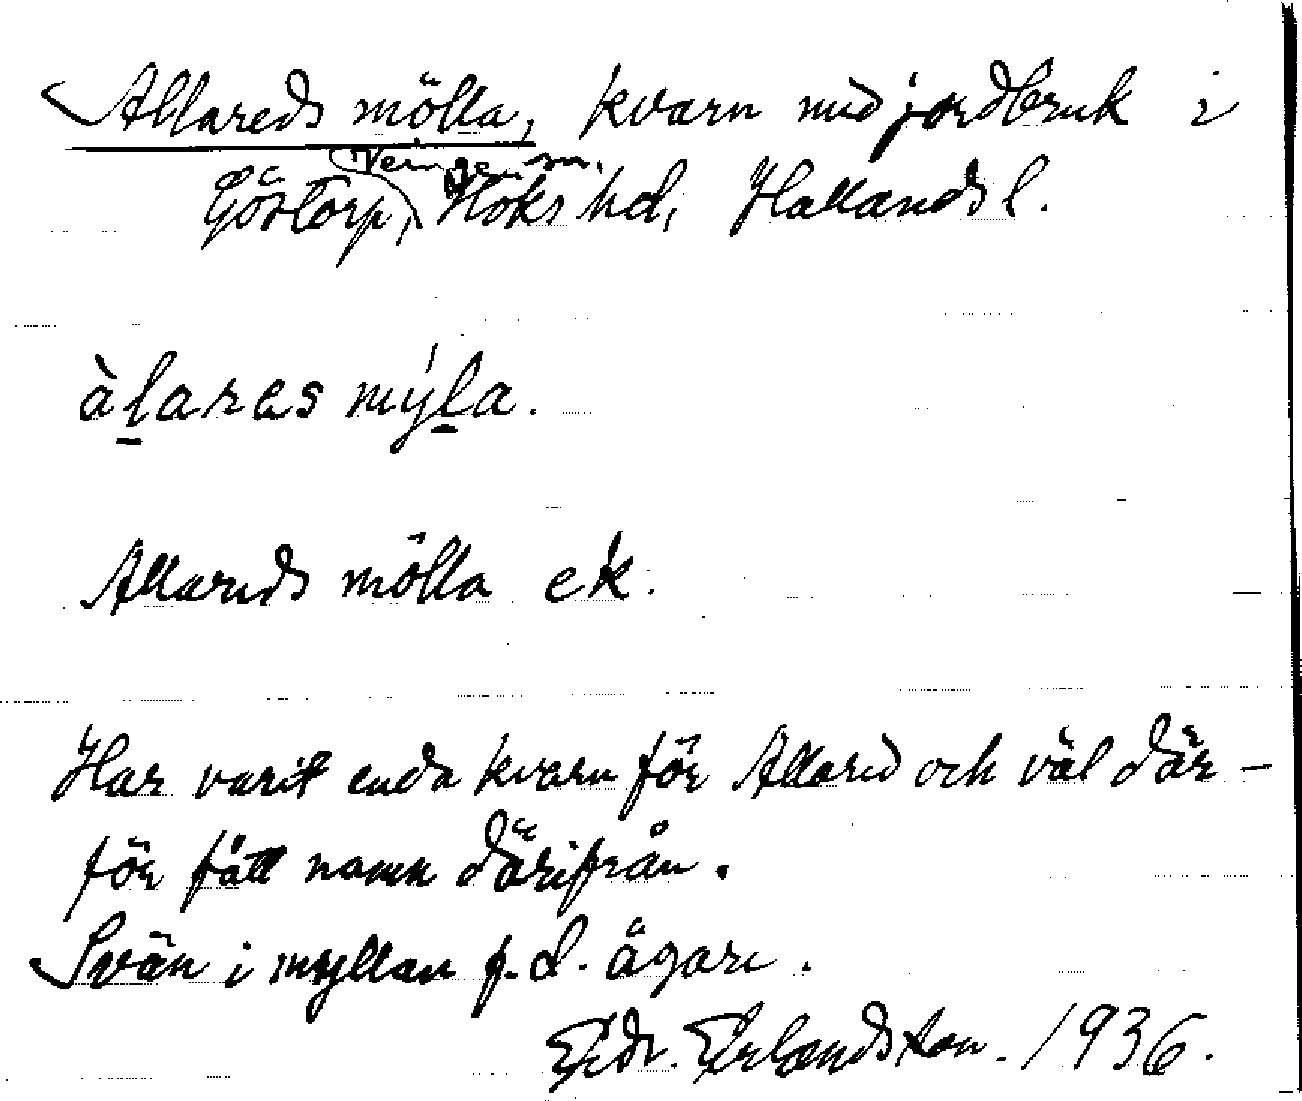 Allareds mölla, kvarn med jordbruk i
Veinge sn.
Göstorp, Höks hd, Hallands l.
àlares mýla.
Allareds mölla ek.
Har varit enda kvarn för Allared och väl där-
för fått namn därifrån.
Svän i myllan f. d. ägare.
Erlandsson. 1936.